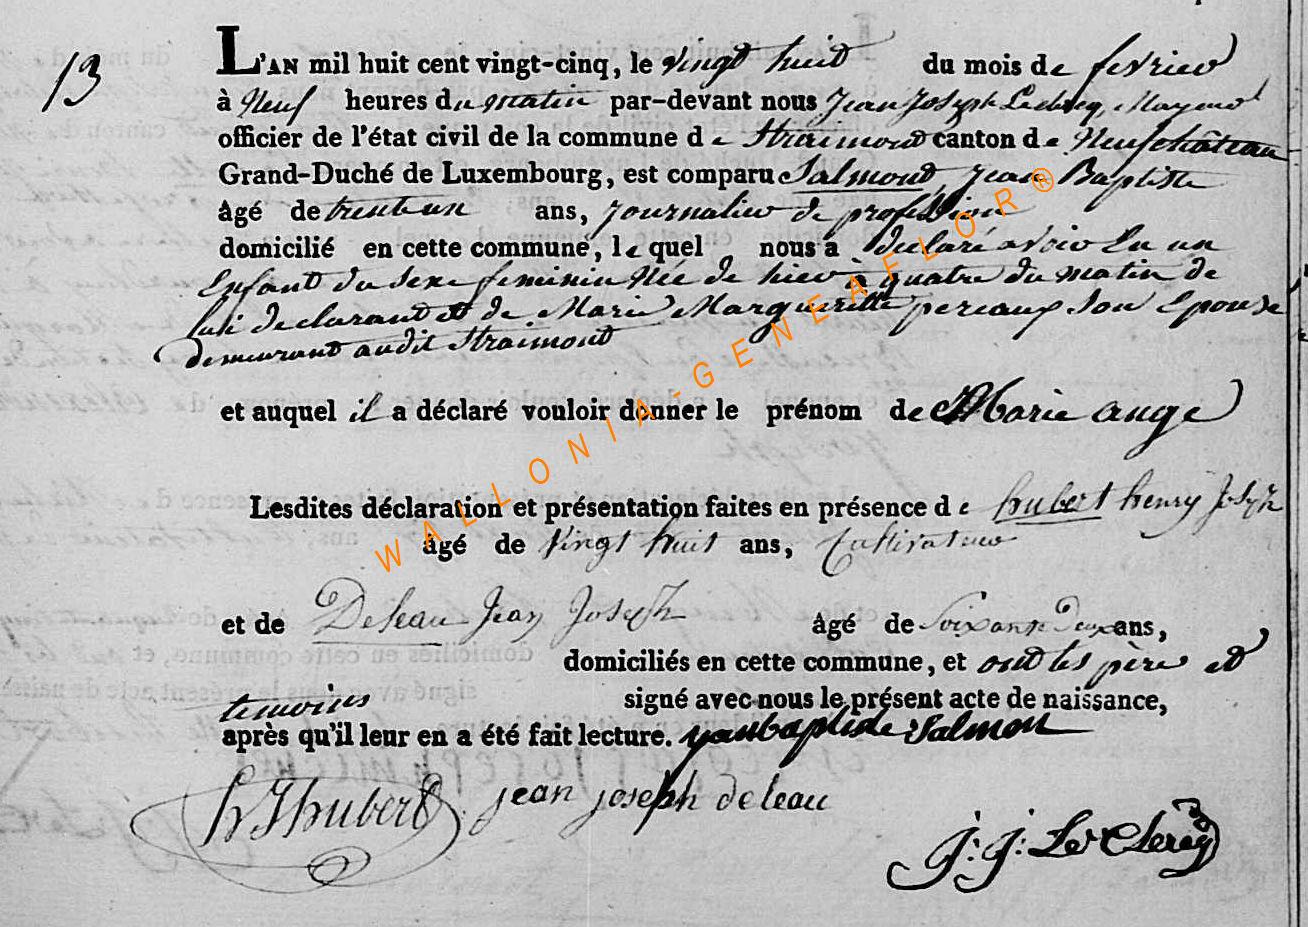 13
L'AN mil huit cent vingt-cinq, le vingt huit du mois de fevrier
à Neuf heures du matin par-devant nous Jean Joseph Leclercq, Mayeur
officier de l'état civil de la commune de Straimont canton de Neufchâteau
Grand-Duché de Luxembourg, est comparu Salmond, Jean Baptiste
âgé de trente un ans, journalier de profession
domicilié en cette commune, le quel nous a declaré avoir Eu un
Enfant du sexe feminin Née de hier à quatre du matin de
luli declarant et de Marie Margueritte pereaux Son Epouse
demeurant audit Straimont
et auquel il a déclaré vouloir donner le prénom de Marie ange
Lesdites déclaration et présentation faites en présence de hubert henry Joseph
âgé de Vingt huit ans, Cultivateur
et de Deleau Jean Joseph âgé de Soixante Deux ans,
domiciliés en cette commune, et ont les père et
temoins signé avec nous le présent acte de naissance,
après qu'il leur en a été fait lecture. yanbaptiste Salmon
h J hubert jean joseph deleau
J: J: Le Clercq
WALLONIA-GENEAFLOR®